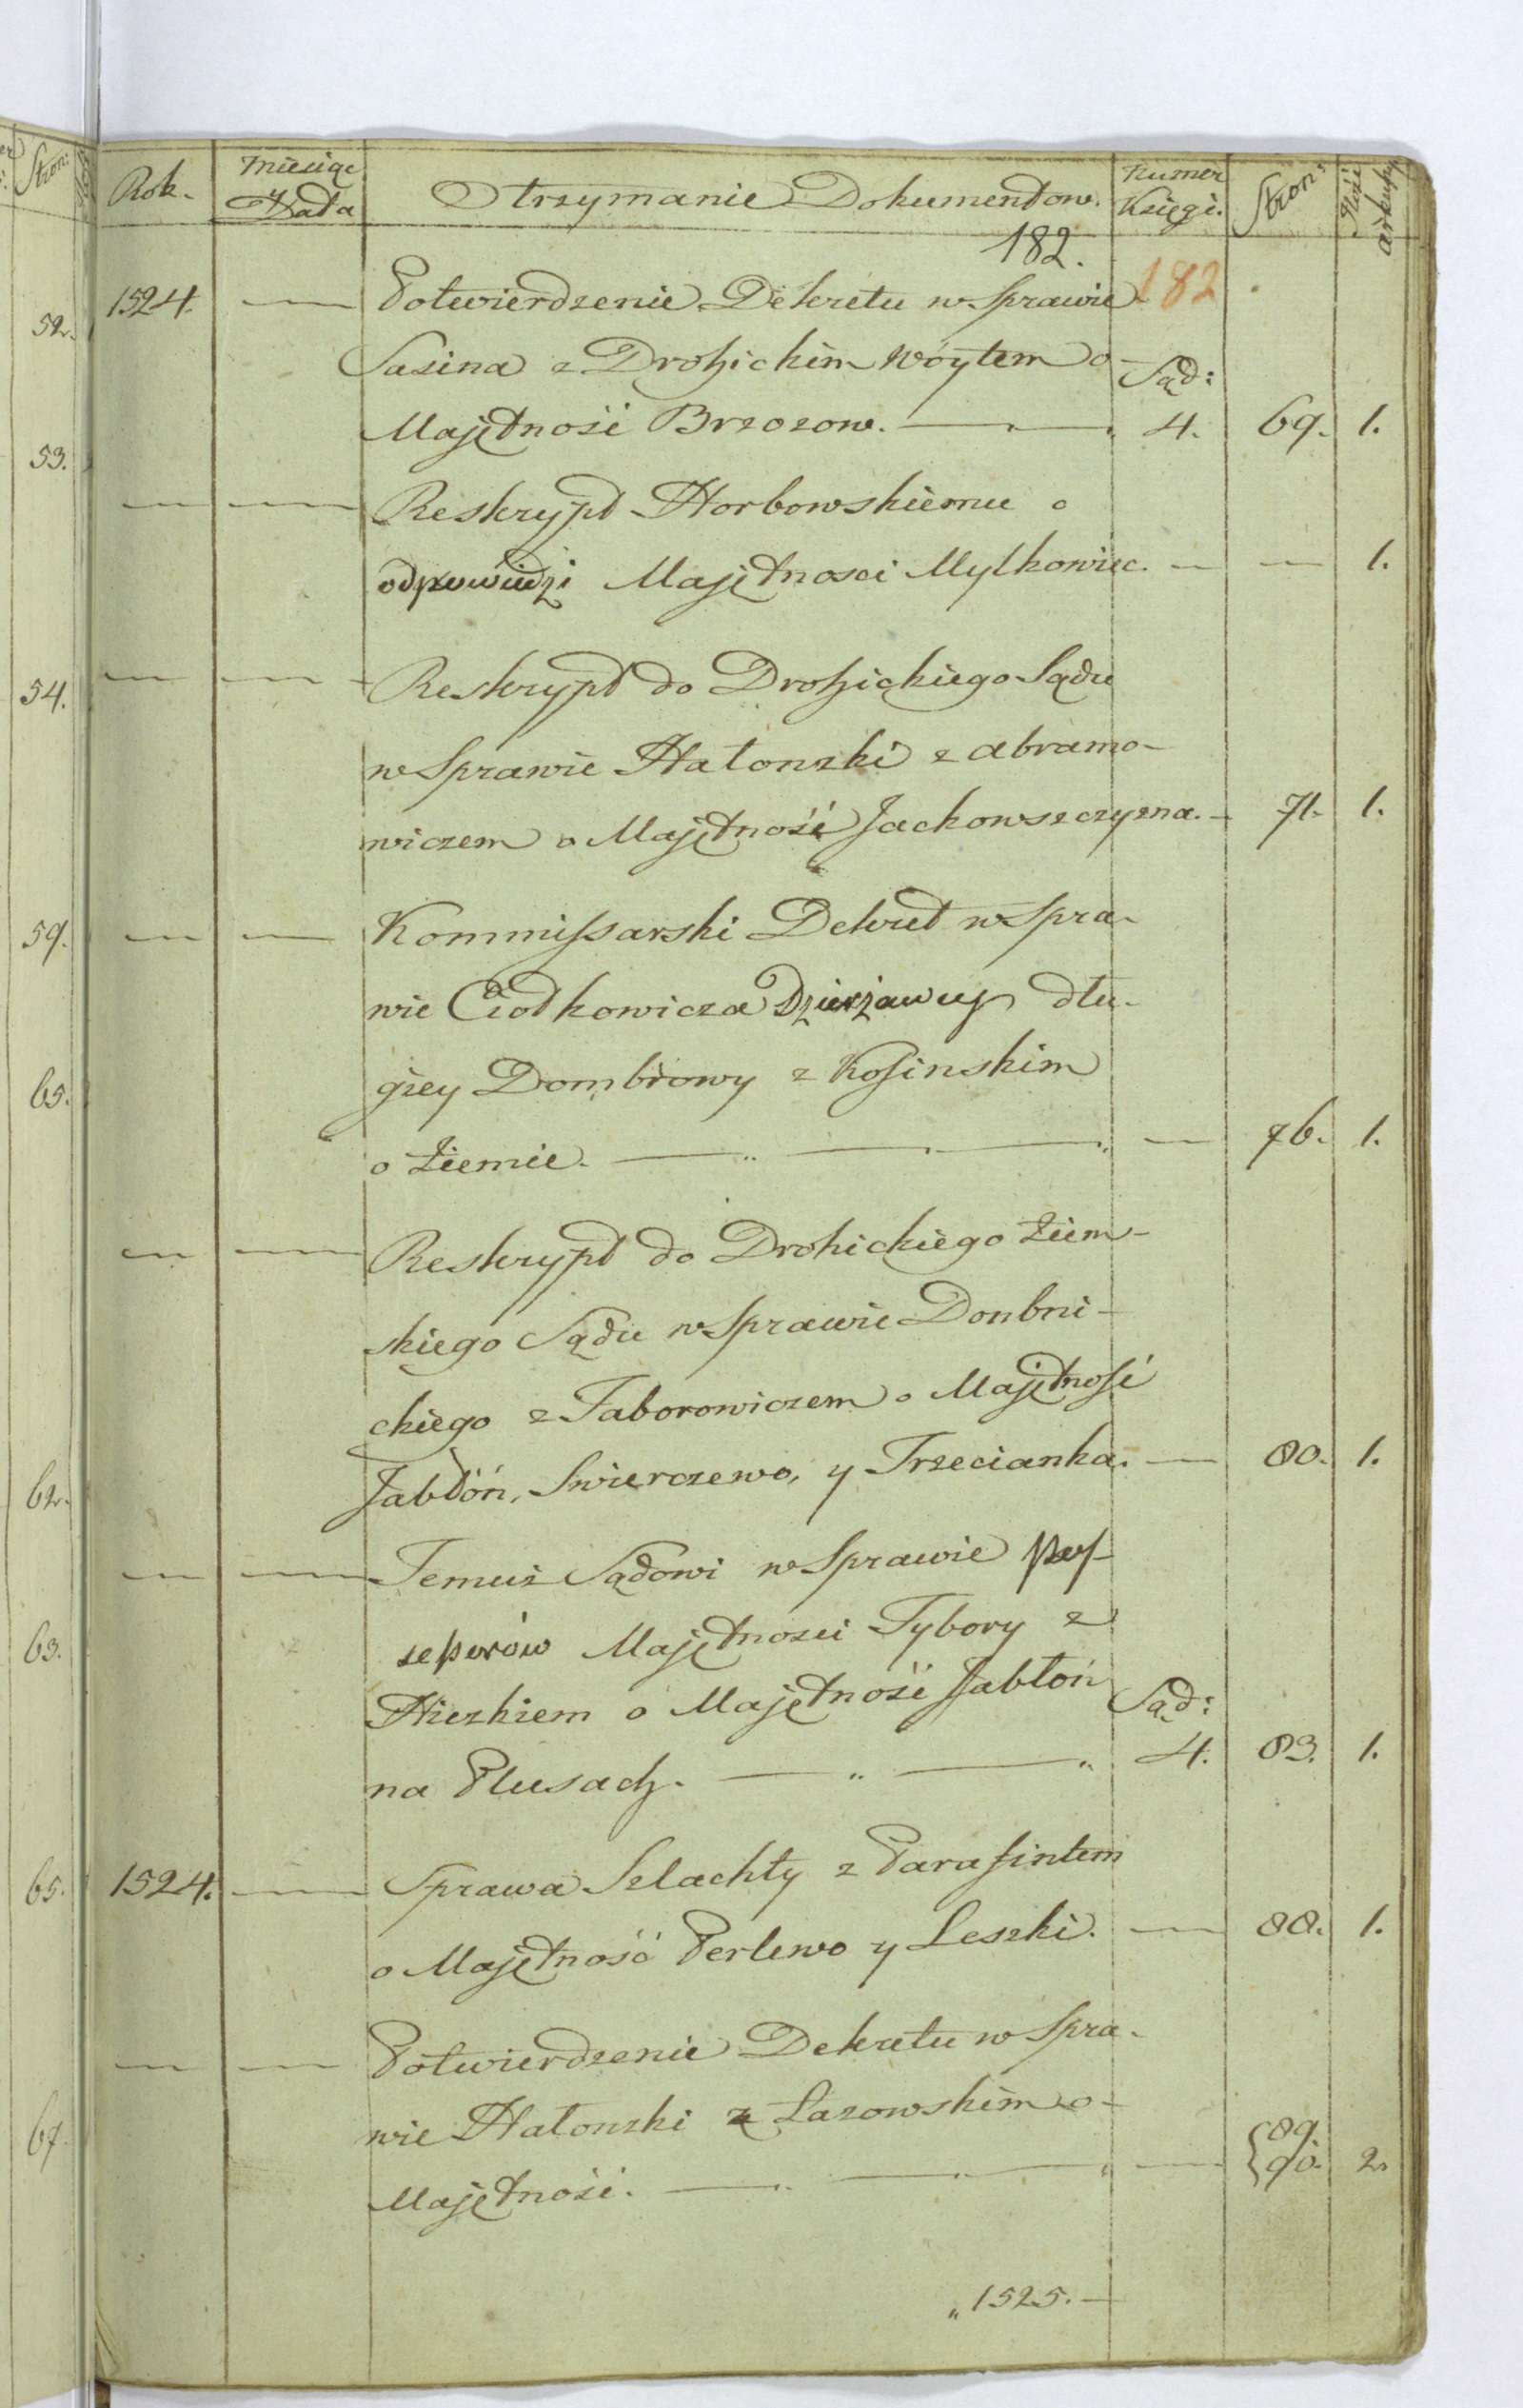 Stron:
Rok. Miesiąc y Data Otrzymanie Dokumentow. Numer Księgi. Stron: Ilość arkuszy
182.
182
1524. — Potwierdzenie Dekretu w Sprawie
52.
Sasina z Drohickim Wóytem o
Sąd:
Majętność Brzozow. — 4. 69. 1.
53.
— — Reskrypt Horbowskiemu o
odpowiedzi Majętnosci Mylkowiec. — — 1.
— — Reskrypt do Drohickiego Sądu
54.
w Sprawie Hatonzki z Abramo-
wiczem o Majętność Jackowszczyzna. — 71. 1.
59. — — Kommissarski Dekret w Spra-
wie Ciodkowicza Dzierżawcy dłu-
giey Dombrowy z Kosinskim
65.
o Ziemie. — — 76. 1.
— — Reskrypt do Drohickiego Ziem-
skiego Sądu w Sprawie Donbni-
ckiego z Taborowiczem o Majętność
Jabłóń, Swierczewo, y Trzecianka. — 80. 1.
62.
— — Temuż Sądowi w Sprawie pos-
sesorów Majętnosci Tybory z
63.
Hiczkiem o Majętność Jabłoń
Sąd:
na Plusach. — 4. 83. 1.
65. 1524. — Sprawa Szlachty z Parafintem
o Majętność Perlewo y Leszki. — 88. 1.
— — Potwierdzenie Dekretu w Spra-
wie Hatonzki z Lazowskim o
67.
Majętność. — — { 89. 90. 2.
„1525. —